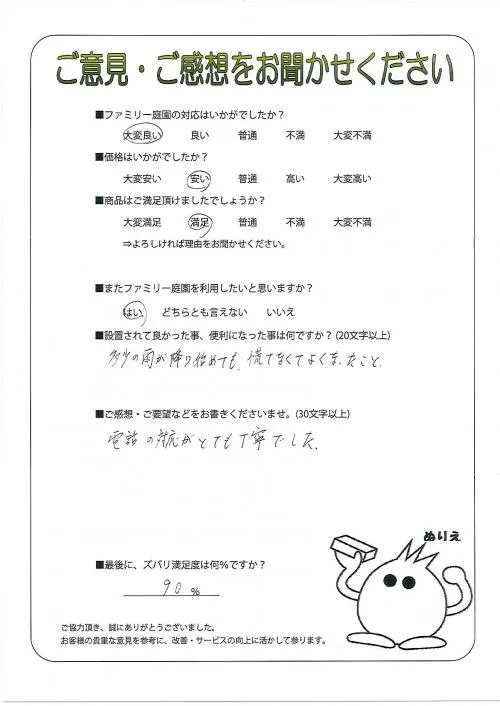 ご意見・ご感想をお聞かせください
■ファミリー庭園の対応はいかがでしたか？
大変良い 良い 普通 不満 大変不満
■価格はいかがでしたか？
大変安い 安い 普通 高い 大変高い
■商品はご満足頂けましたでしょうか？
大変満足 満足 普通 不満 大変不満
⇒よろしければ理由をお聞かせください。
■またファミリー庭園を利用したいと思いますか？
はい どちらとも言えない いいえ
■設置されて良かった事、便利になった事は何ですか？(20文字以上)
多少の雨が降り始めても、慌てなくてよくなったこと。
■ご感想・ご要望などをお書きくださいませ。(30文字以上)
電話の対応がとても丁寧でした。
ぬりえ
■最後に、ズバリ満足度は何％ですか？
90 ％
ご協力頂き、誠にありがとうございました。
お客様の貴重な意見を参考に、改善・サービスの向上に活かして参ります。